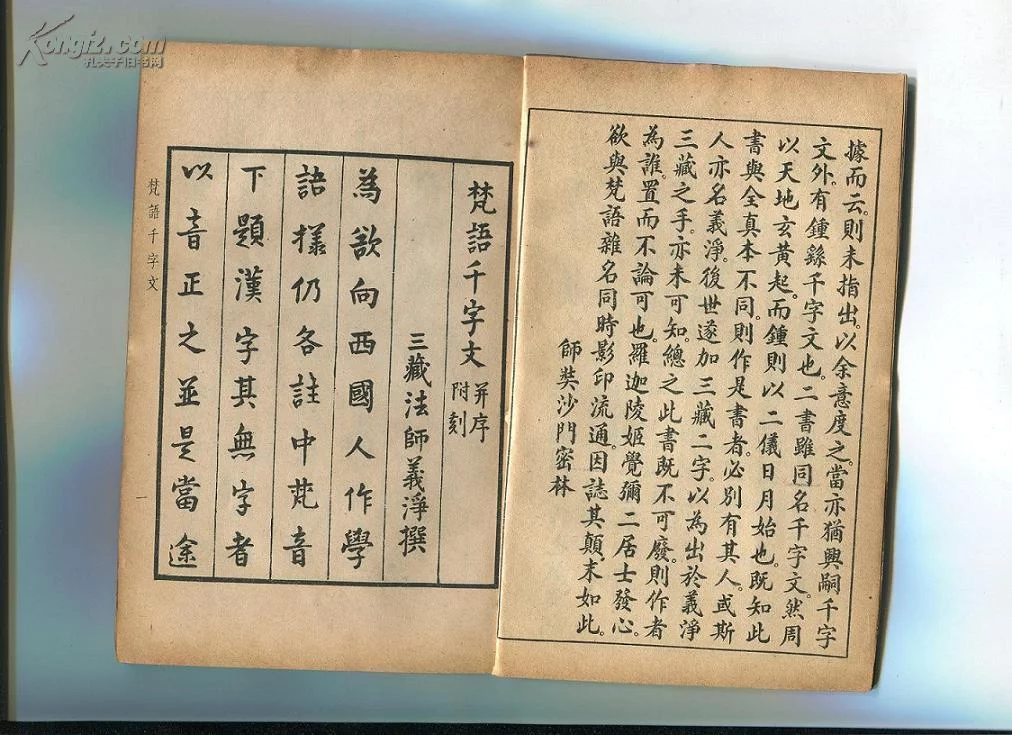 據而云。則未指出。以余意度之。當亦猶興嗣千字
文外。有鍾繇千字文也。二書雖同名千字文。然周
以天地玄黃起。而鍾則以二儀日月始也。既知此
書與全真本不同。則作是書者。必別有其人。或斯
人亦名義淨。後世遂加三藏二字。以為出於義淨
三藏之手。亦未可知。總之此書既不可廢。則作者
為誰。置而不論可也。羅迦陵姬覺彌二居士發心。
欲與梵語雜名同時影印流通。因誌其顛末如此。
師奘沙門密林
梵語千字文 并序 附刻
三藏法師義淨撰
為欲向西國人作學
語樣仍各註中梵音
下題漢字其無字者
以音正之並是當途
梵語千字文
一
Kongfz.com
孔夫子旧书网